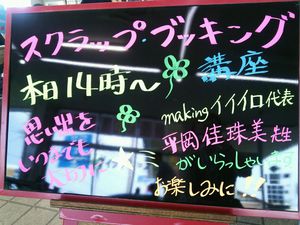 スクラップ・ブッキング
本日14時〜 講座
making イイイロ代表
平岡佳珠美
がいらっしゃいます
お楽しみに!!
思い出を
いつまでも
大切に